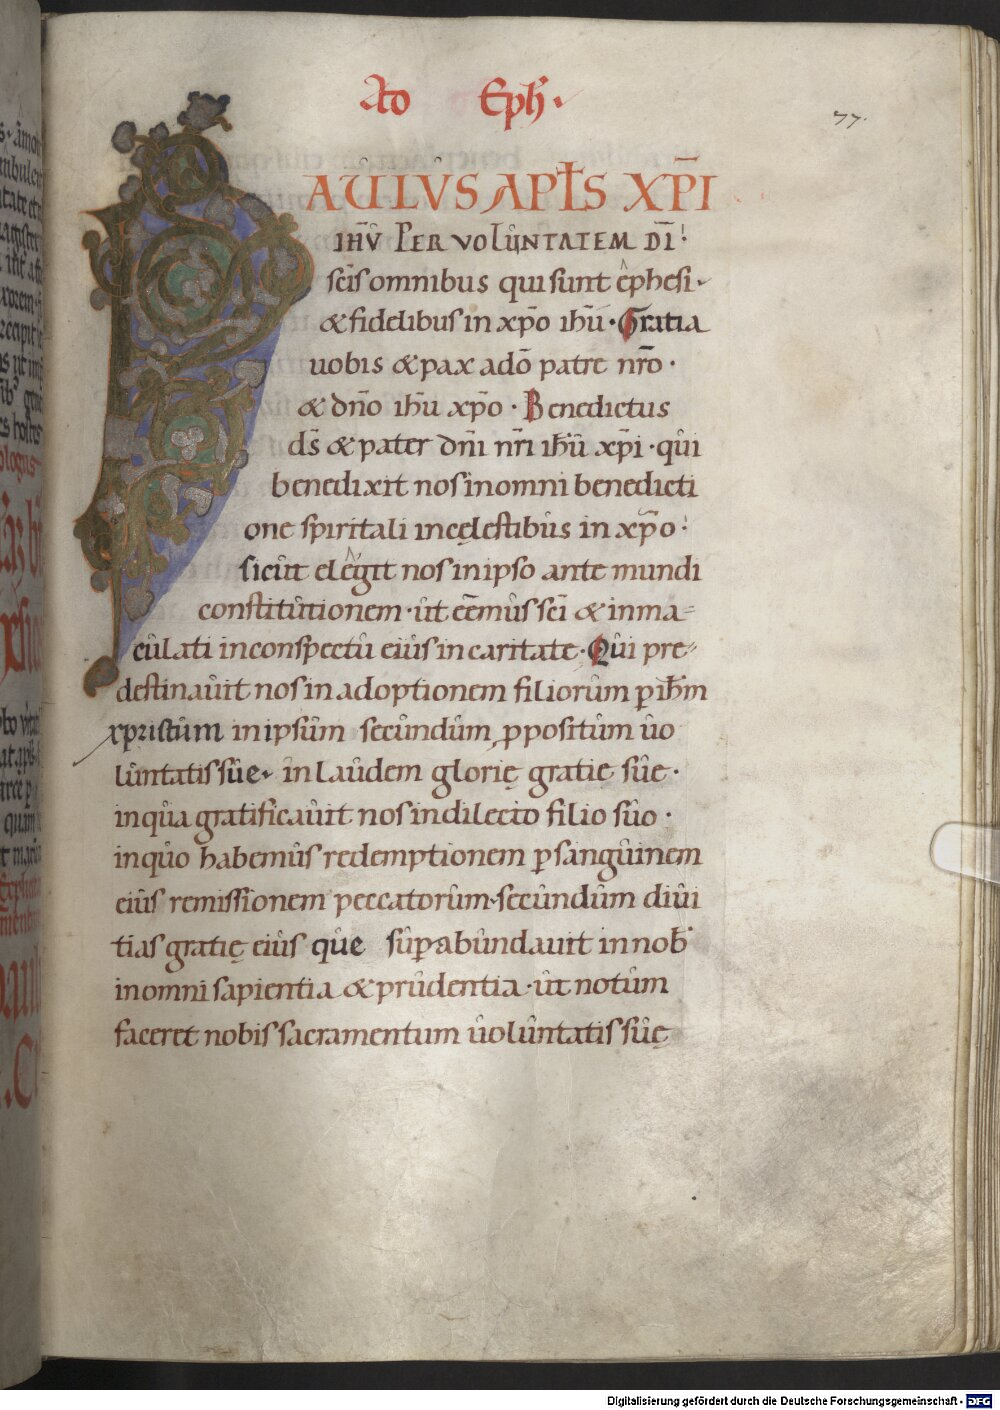 Ad Eph.
77.
PAULVS APL̄S XP̄I
IHV̄ PER VOLŮNTATEM DĪ.
sc̄is omnibus qui sunt ephesi.
& fidelibus in xp̄o ihū. Gratia
uobis & pax a dō patre nr̄o.
& dn̄o ihū xp̄o. Benedictus
ds̄ & pater dn̄i nr̄i ihū xp̄i. qůi
benedixit nos in omni benedicti
one spiritali in cęlestibůs in xp̄o.
sicůt elegit nos in ipso ante mundi
constitůtionem. ůt eēmůs sc̄i & inma=
cůlati in conspectů eiůs in caritate. Qůi pre=
destinaůit nos in adoptionem filiorům p̱ ih̄m
xpristům in ipsům secůndům p̱positům ůo
lůntatis sůe. in laůdem glorię gratie sůe.
in qůa gratificaůit nos in dilecto filio sůo.
in qůo habemůs redemptionem p̱ sangůinem
eiůs remissionem peccatorům. secůndům diůi
tias gratię eiůs qůe sůp̱abůndauit in nob̄
in omni sapientia & průdentia. ůt notům
faceret nobis sacramentum ůolůntatis sůę
Digitalisierung gefördert durch die Deutsche Forschungsgemeinschaft - DFG